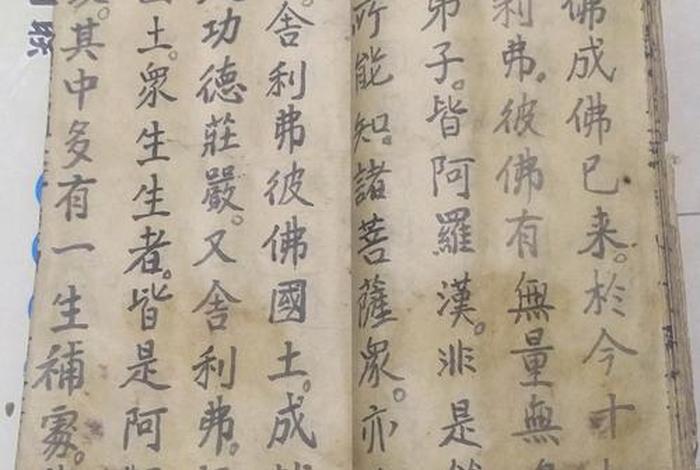 佛成佛已来。於今十
利弗。彼佛有無量無
弟子。皆阿羅漢。非是
所能知。諸菩薩眾。亦
舍利弗彼佛國土。成
功德莊嚴。又舍利弗。
土。眾生生者。皆是阿
其中多有一生補處。